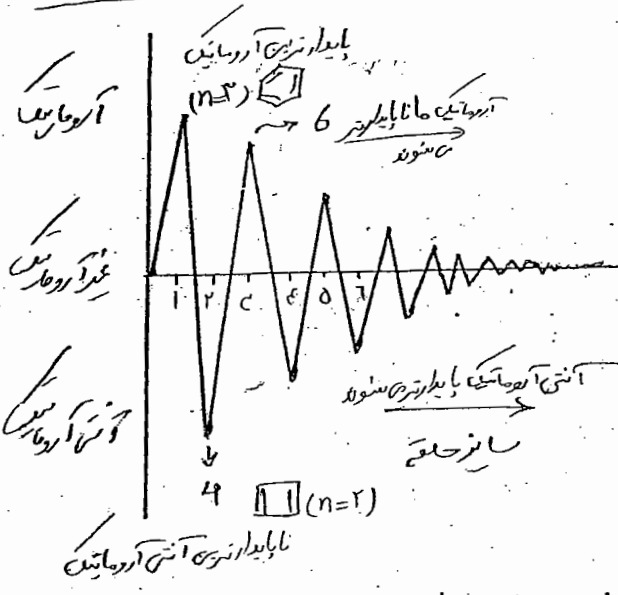 پایدارترین آروماتیک
(n=۳)
آروماتیک
6
آروماتیک ها ناپایدارتر
می شوند
غیرآروماتیک
۱ ۲ ۳ ۴ ۵ ۶
آنتی آروماتیک
آنتی آروماتیک پایدارتر می شوند
سایز حلقه
4
(n=۲)
ناپایدارترین آنتی آروماتیک